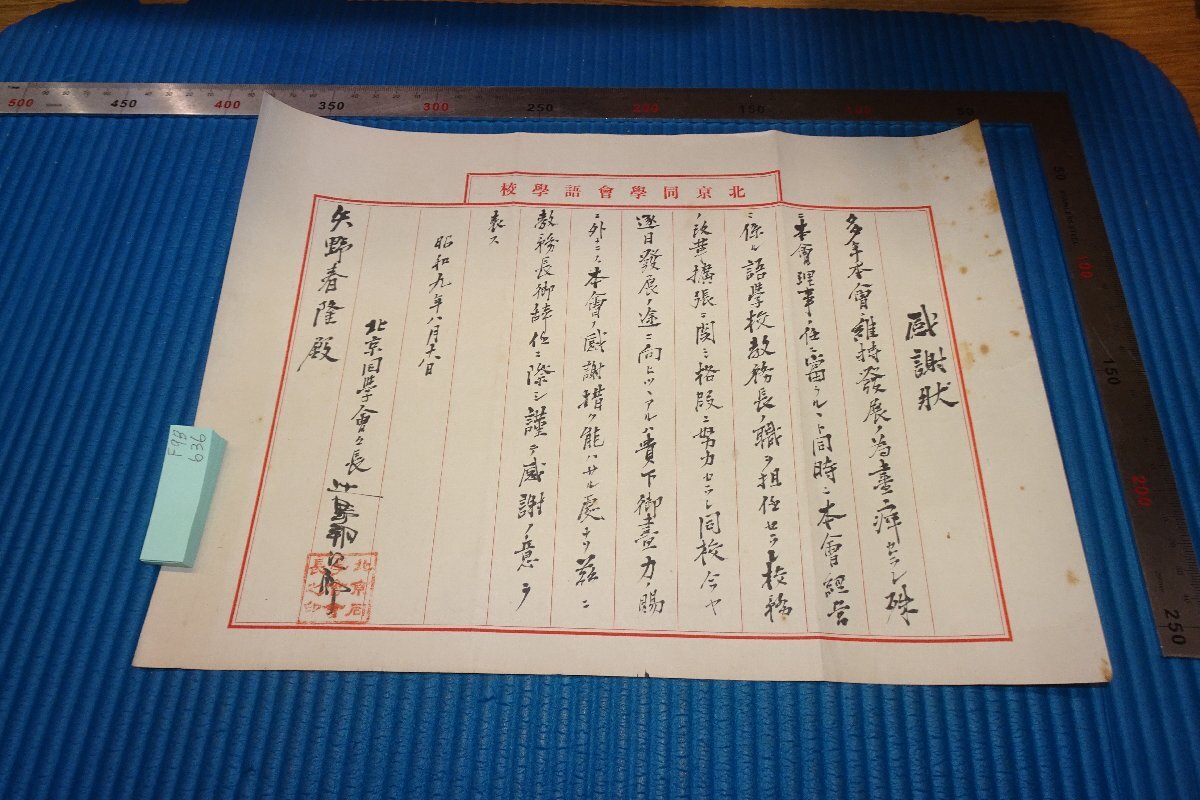 北京同學會語學校
感謝狀
多年本會ノ維持發展ノ為盡瘁セラレ殊
ニ本會理事ノ任ニ當ラルヽト同時ニ本會經営
ニ係ル語學校教務長ノ職ヲ担任セラレ校務
ノ改善擴張ニ関シ格段ニ努力セラレ同校今ヤ
逐日發展ノ途ニ向ヒツヽアルハ貴下御盡力ノ賜
ニ外ナラス本會ノ感謝措ク能ハサル處ナリ茲ニ
教務長御辞任ニ際シ謹テ感謝ノ意ヲ
表ス
昭和九年八月
北京同學會々長
矢野春隆殿
北京同學會會長之印
F9B
636
500 450 400 350 300 250 200 150 50
50
100
150
200
250